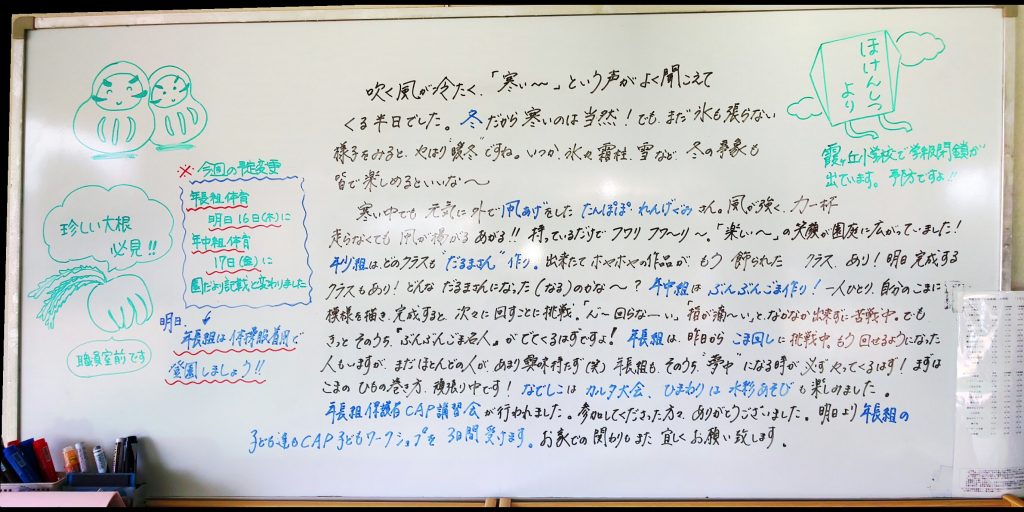 吹く風が冷たく、「寒い〜」という声がよく聞こえて
くる半日でした。冬だから寒いのは当然！でも、まだ氷も張らない
様子をみると、やはり"暖冬"ですね。いつか、氷や霜柱、雪など、冬の事象も
皆で楽しめるといいな〜
寒い中でも 元気に外で"凧あげ"をした たんぽぽ・れんげぐみさん。風が強く、力一杯
走らなくても 凧が揚がる あがる!! 持っているだけで フワリ フワ〜リ〜。「楽しい〜」の笑顔が園庭に広がっていました！
年少組は、どのクラスも"だるまさん"作り。出来たて ホヤホヤの作品が、もう 飾られた クラス、あり！明日 完成する
クラスもあり！どんな だるまさんになった(なる)のかな〜？ 年中組は ぶんぶんごま作り！ 一人ひとり、自分のこまに
模様を描き、完成すると、次々に 回すことに挑戦。「ん〜 回らな〜い」「指が痛〜い」と、なかなか出来ずに 苦戦中。でも
きっと そのうち、『ぶんぶんごま名人』が でてくるはずですよ！ 年長組は、昨日から こま回しに 挑戦中。もう 回せるようになった
人もいますが、まだほとんどの人が、あまり興味持たず(笑) 年長組も、そのうち"夢中"になる時が 必ず やってくるはず！まずは
こまの ひもの巻き方、頑張り中です！ なでしこは カルタ大会、ひまわりは 水彩あそびも 楽しみました。
年長組保護者CAP講習会が行われました。参加してくださった方々、ありがとうございました。明日より年長組の
子ども達もCAP子どもワークショップを 3日間 受けます。お家での関わりもまた 宜しくお願い致します。
※ 今週の予定変更
年長組体育
明日16日(木)に
年中組体育
17日(金)に
園だより記載と変わりました
明日、
年長組は 体操服着用で
登園しましょう!!
珍しい大根
必見!!
職員室前です
ほけんしつ
より
霞ヶ丘小学校で学級閉鎖が
出ています。予防ですよ!!